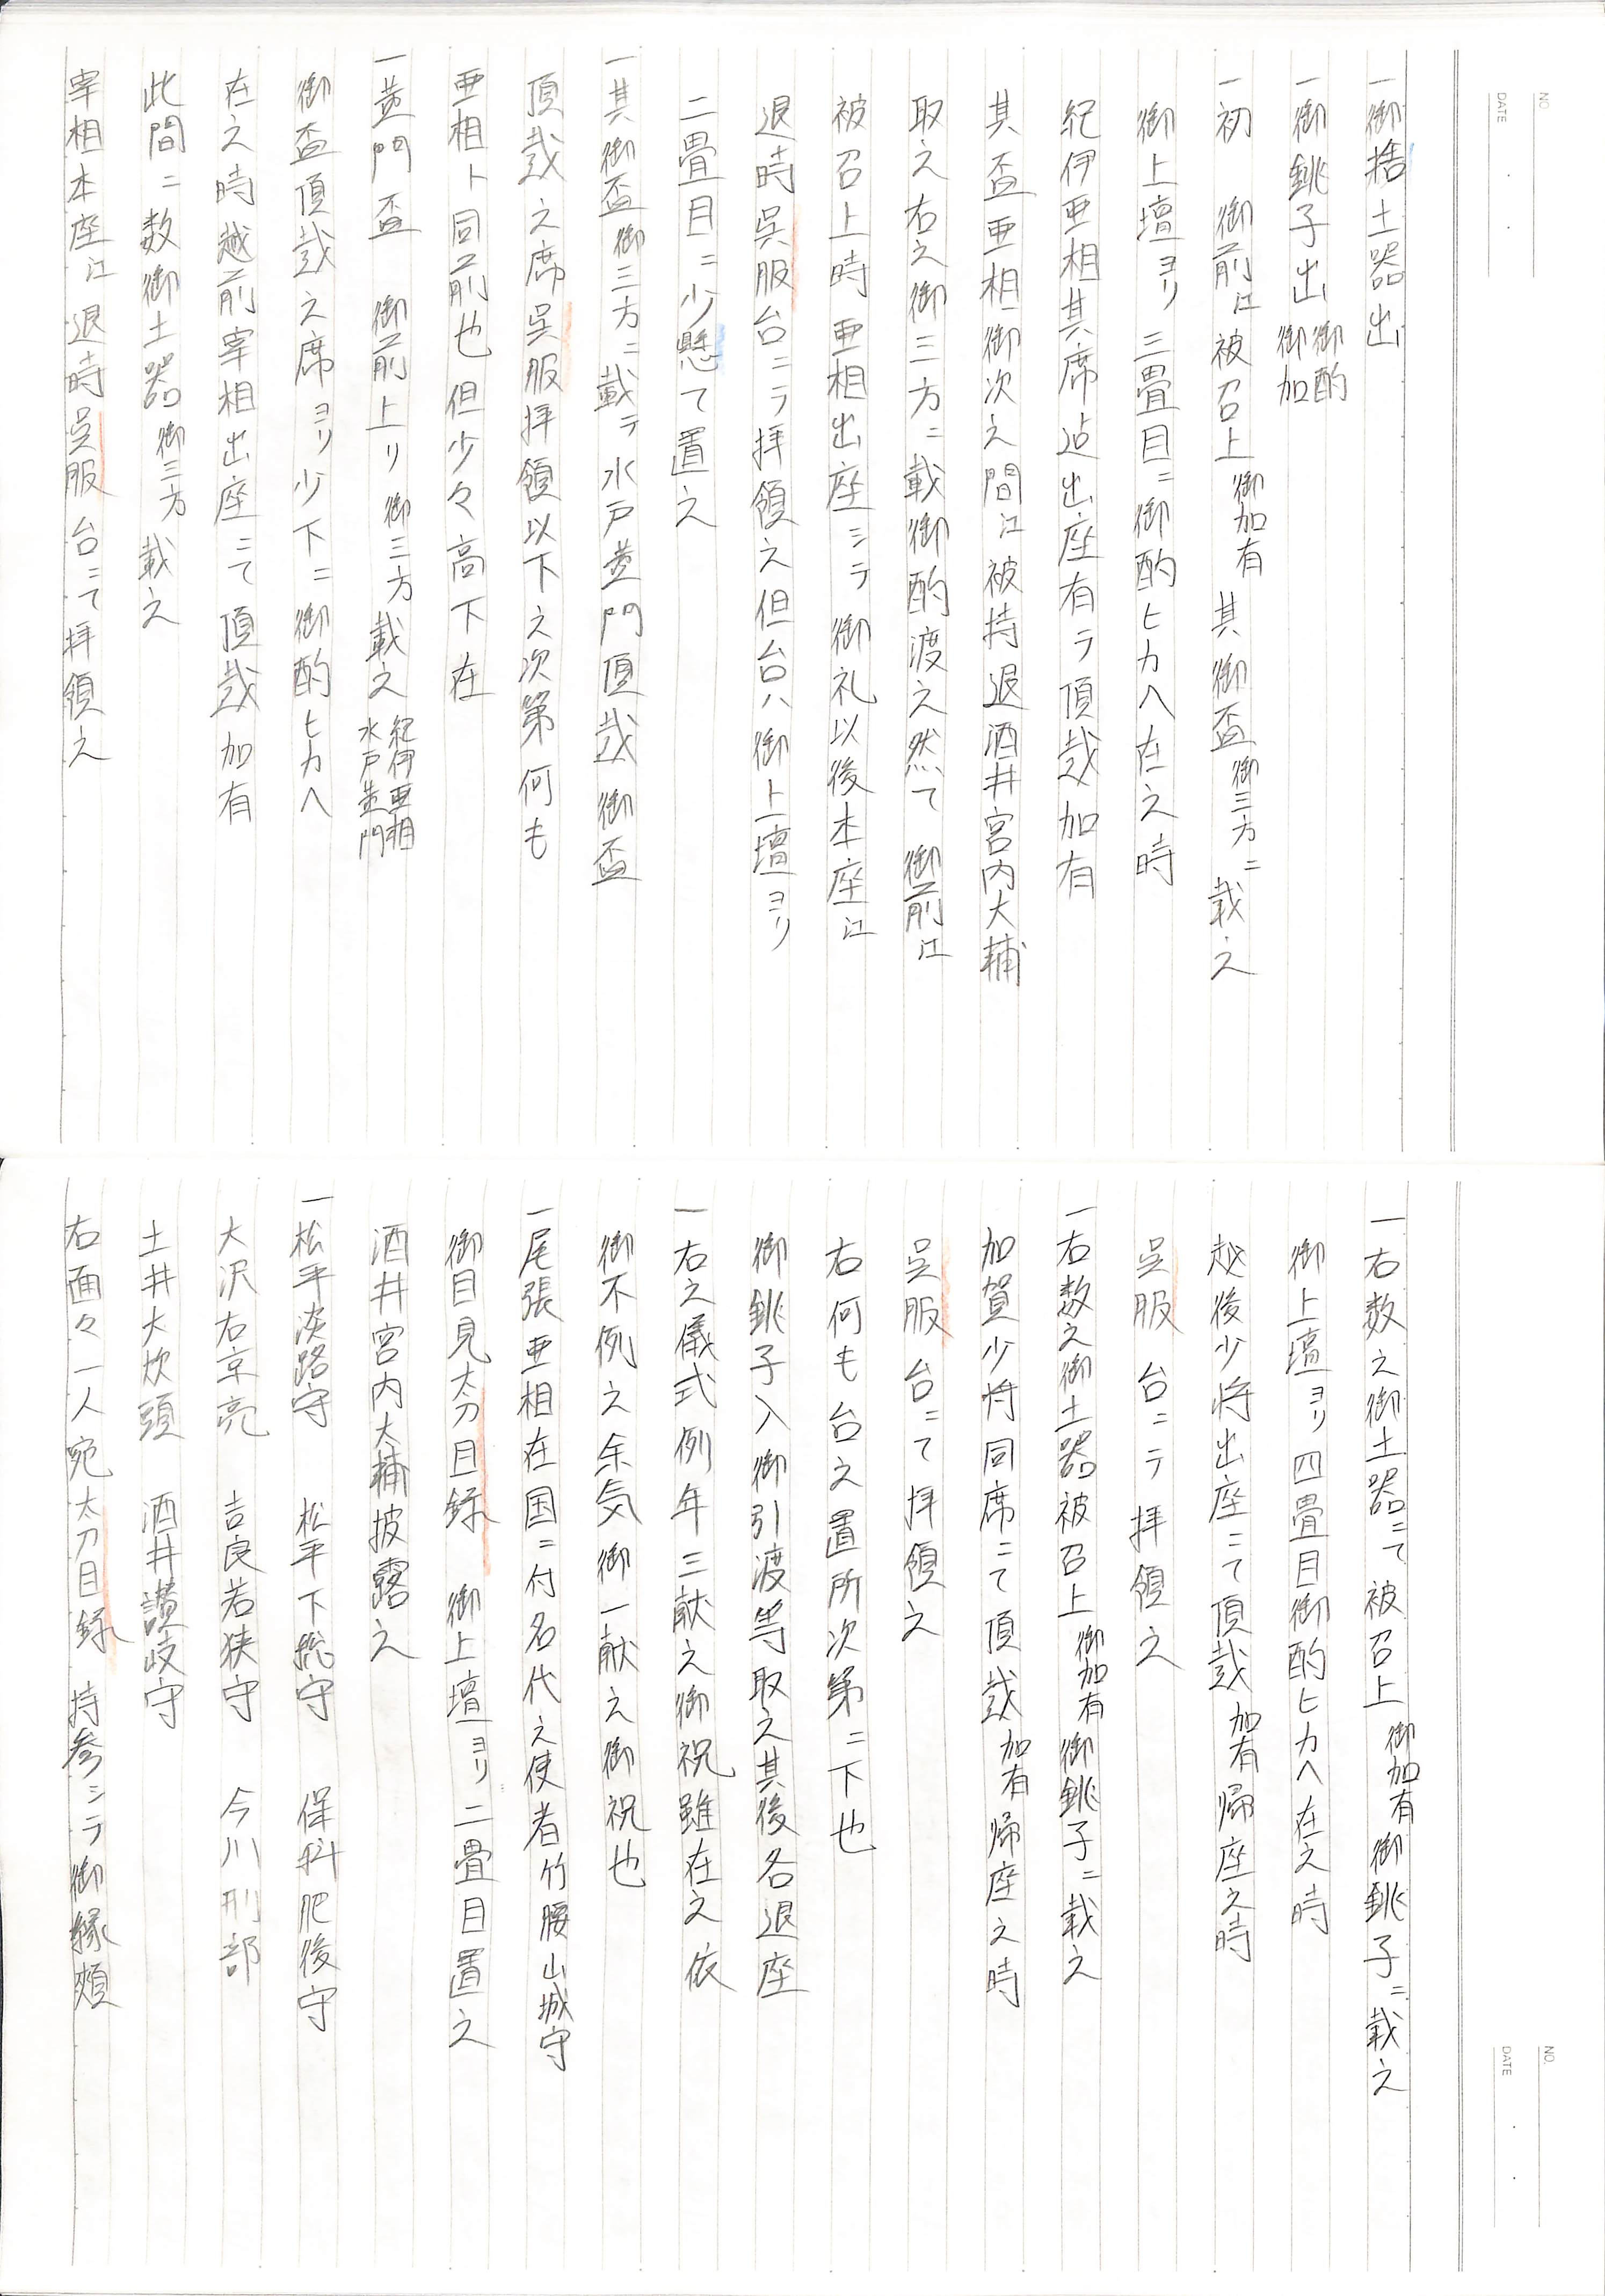 NO.
DATE
一御捨土器出
一御銚子出 御酌 御加
一初 御前江被召上 御加有 其御盃 御三方ニ 載之
御上壇ヨリ三畳目ニ御酌ヒカヘ在之時
紀伊亜相其席迠出座有テ頂戴加有
其盃亜相御次之間江被持退酒井宮内大輔
取之右之御三方ニ載御酌渡之然て 御前江
被召上時亜相出座シテ御礼以後本座江
退時呉服台ニテ拝領之但台ハ御上壇ヨリ
二畳目ニ少懸て置之
一其御盃御三方ニ載テ水戸黄門頂戴御盃
頂戴之席呉服拝領以下之次第何も
亜相ト同前也但少々高下在
一黄門盃 御前上リ御三方載之 紀伊亜相 水戸黄門
御盃頂戴之席ヨリ少下ニ御酌ヒカヘ
在之時越前宰相出座ニて頂戴加有
此間ニ数御土器御三方載之
宰相本座江退時呉服台ニて拝領之
NO.
DATE
一右数之御土器ニて被召上 御加有 御銚子ニ載之
御上壇ヨリ四畳目御酌ヒカヘ在之時
越後少将出座ニて頂戴 加有 帰座之時
呉服台ニテ拝領之
一右数之御土器被召上 御加有 御銚子ニ載之
加賀少将同席ニて頂戴 加有 帰座之時
呉服台ニて拝領之
右何も台之置所次第ニ下也
御銚子入御引渡等取之其後各退座
一右之儀式例年三献之御祝雖在之依
御不例之余気御一献之御祝也
一尾張亜相在国ニ付名代之使者竹腰山城守
御目見太刀目録 御上壇ヨリ二畳目置之
酒井宮内大輔披露之
一松平淡路守 松平下総守 保科肥後守
大沢右京亮 吉良若狭守 今川刑部
土井大炊頭 酒井讃岐守
右面々一人宛太刀目録持参シテ御縁頬